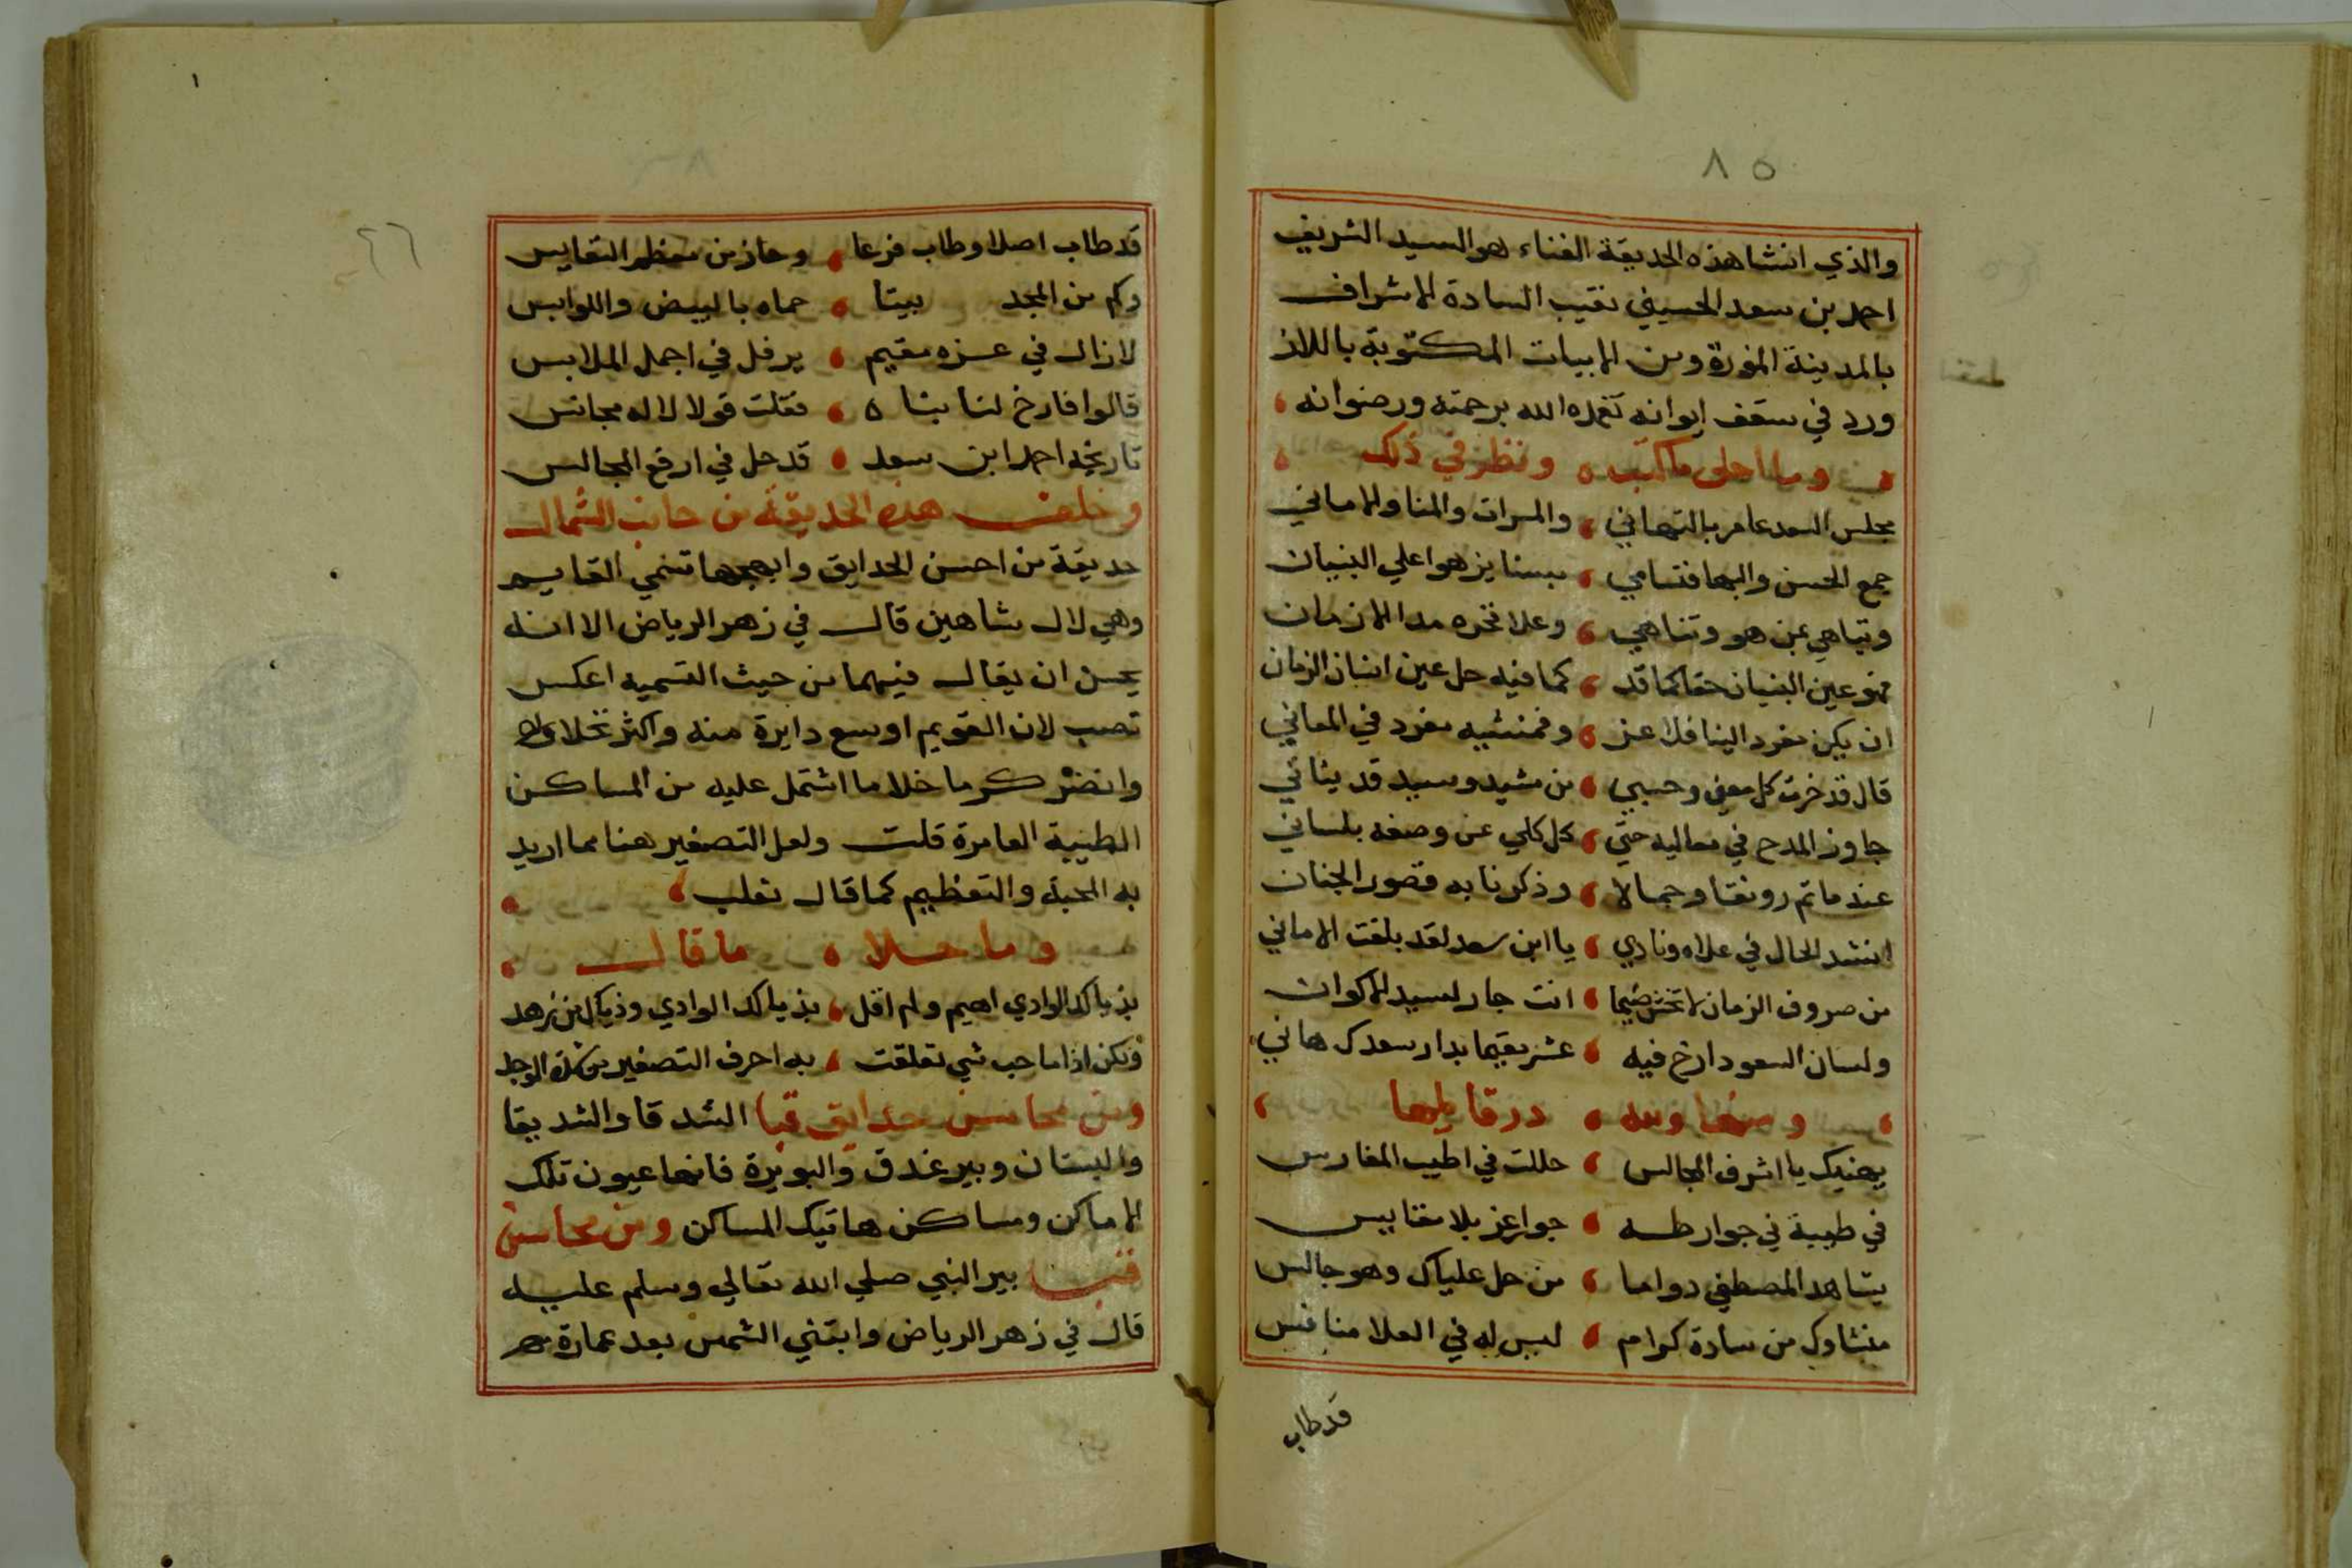 ٨٥
والذي انشا هذه الحديقة الغناء هو السيد الشريف
احمد بن سعد الحسيني نقيب السادة الاشراف
بالمدينة المنورة ومن الابيات المكتوبة باللاز
ورد في سقف ايوانه تغمده الله برحمته ورضوانه
وما احلى ما كتب ونظر في ذلك
مجلس السعد عامر بالتهاني والمسرات والمنا والاماني
جمع الحسن والبها فتسامي ببنا يزهوا علي البنيان
وتباهي بمن هو وتناهي وعلا فخره مدا الازمان
فهو عين البنيان حقا كما قد كما فيه حل عين انسان الزمان
ان يكن مفرد البنا فلا عز وفمنشيه مفرد في المعاني
قال قد حزت كل معني وحسبي من مشيد وسيد قد بناني
جاوز المدح في معاليه حتي كل كلي عن وصفه بلساني
عند ما تم رونقا وجمالا وذكرنا به قصور الجنان
انشد الحال في علاه ونادي يا ابن سعد لقد بلغت الاماني
من صروف الزمان لا تخش ضيما انت جار لسيد الاكوان
ولسان السعود ارخ فيه عش مقيما بدار سعدك هاني
در قايلها
يهنيك يا اشرف المجالس حللت في اطيب المغارس
في طيبة في جوار طه جوا عز بلا مقايس
يشاهد المصطفي دواما من حل علياك وهو جالس
منشاوك من سادة كرام ليس له في العلا منافس
قد طاب
٤٦
قد طاب اصلا وطاب فرعا وحاز من معظم النفايس
وكم من المجد بيتا حماه بالبيض واللوابس
لا زال في عزه مقيم يرفل في اجمل الملابس
قالوا فارخ لنا بناه فقلت قولا لاله مجانس
تاريخه احمد ابن سعد قد حل في ارفع المجالس
وخلف هذه الحديقة من جانب الشمال
حديقة من احسن الحدايق وابهجها تسمي القايم
وهي لال شاهين قال في زهر الرياض الا انه
يحسن ان يقال فيهما من حيث التسميه اعكس
تصب لان القويم اوسع دايرة منه واكثر نخلا
وانضر كرما خلا ما اشتمل عليه من المساكن
الطيبة العامرة قلت ولعل التصغير هنا مما اريد
به المحبة والتعظيم كما قال ثعلب
وما حلا ما قال
بذياك الوادي اهيم ولم اقل بذياك الوادي وذياك من زهد
ولكن اذا ما حب شي تعلقت به احرف التصغير من شدة الوجد
ومن محاسن حدايق قبا الشدقا والشديقا
والبستان وبير غدق والبويرة فانها عيون تلك
الاماكن ومساكن هاتيك المساكن ومن محاسن
قبا بير النبي صلي الله تعالي وسلم عليه
قال في زهر الرياض وابتني الشمس بعد عمارة